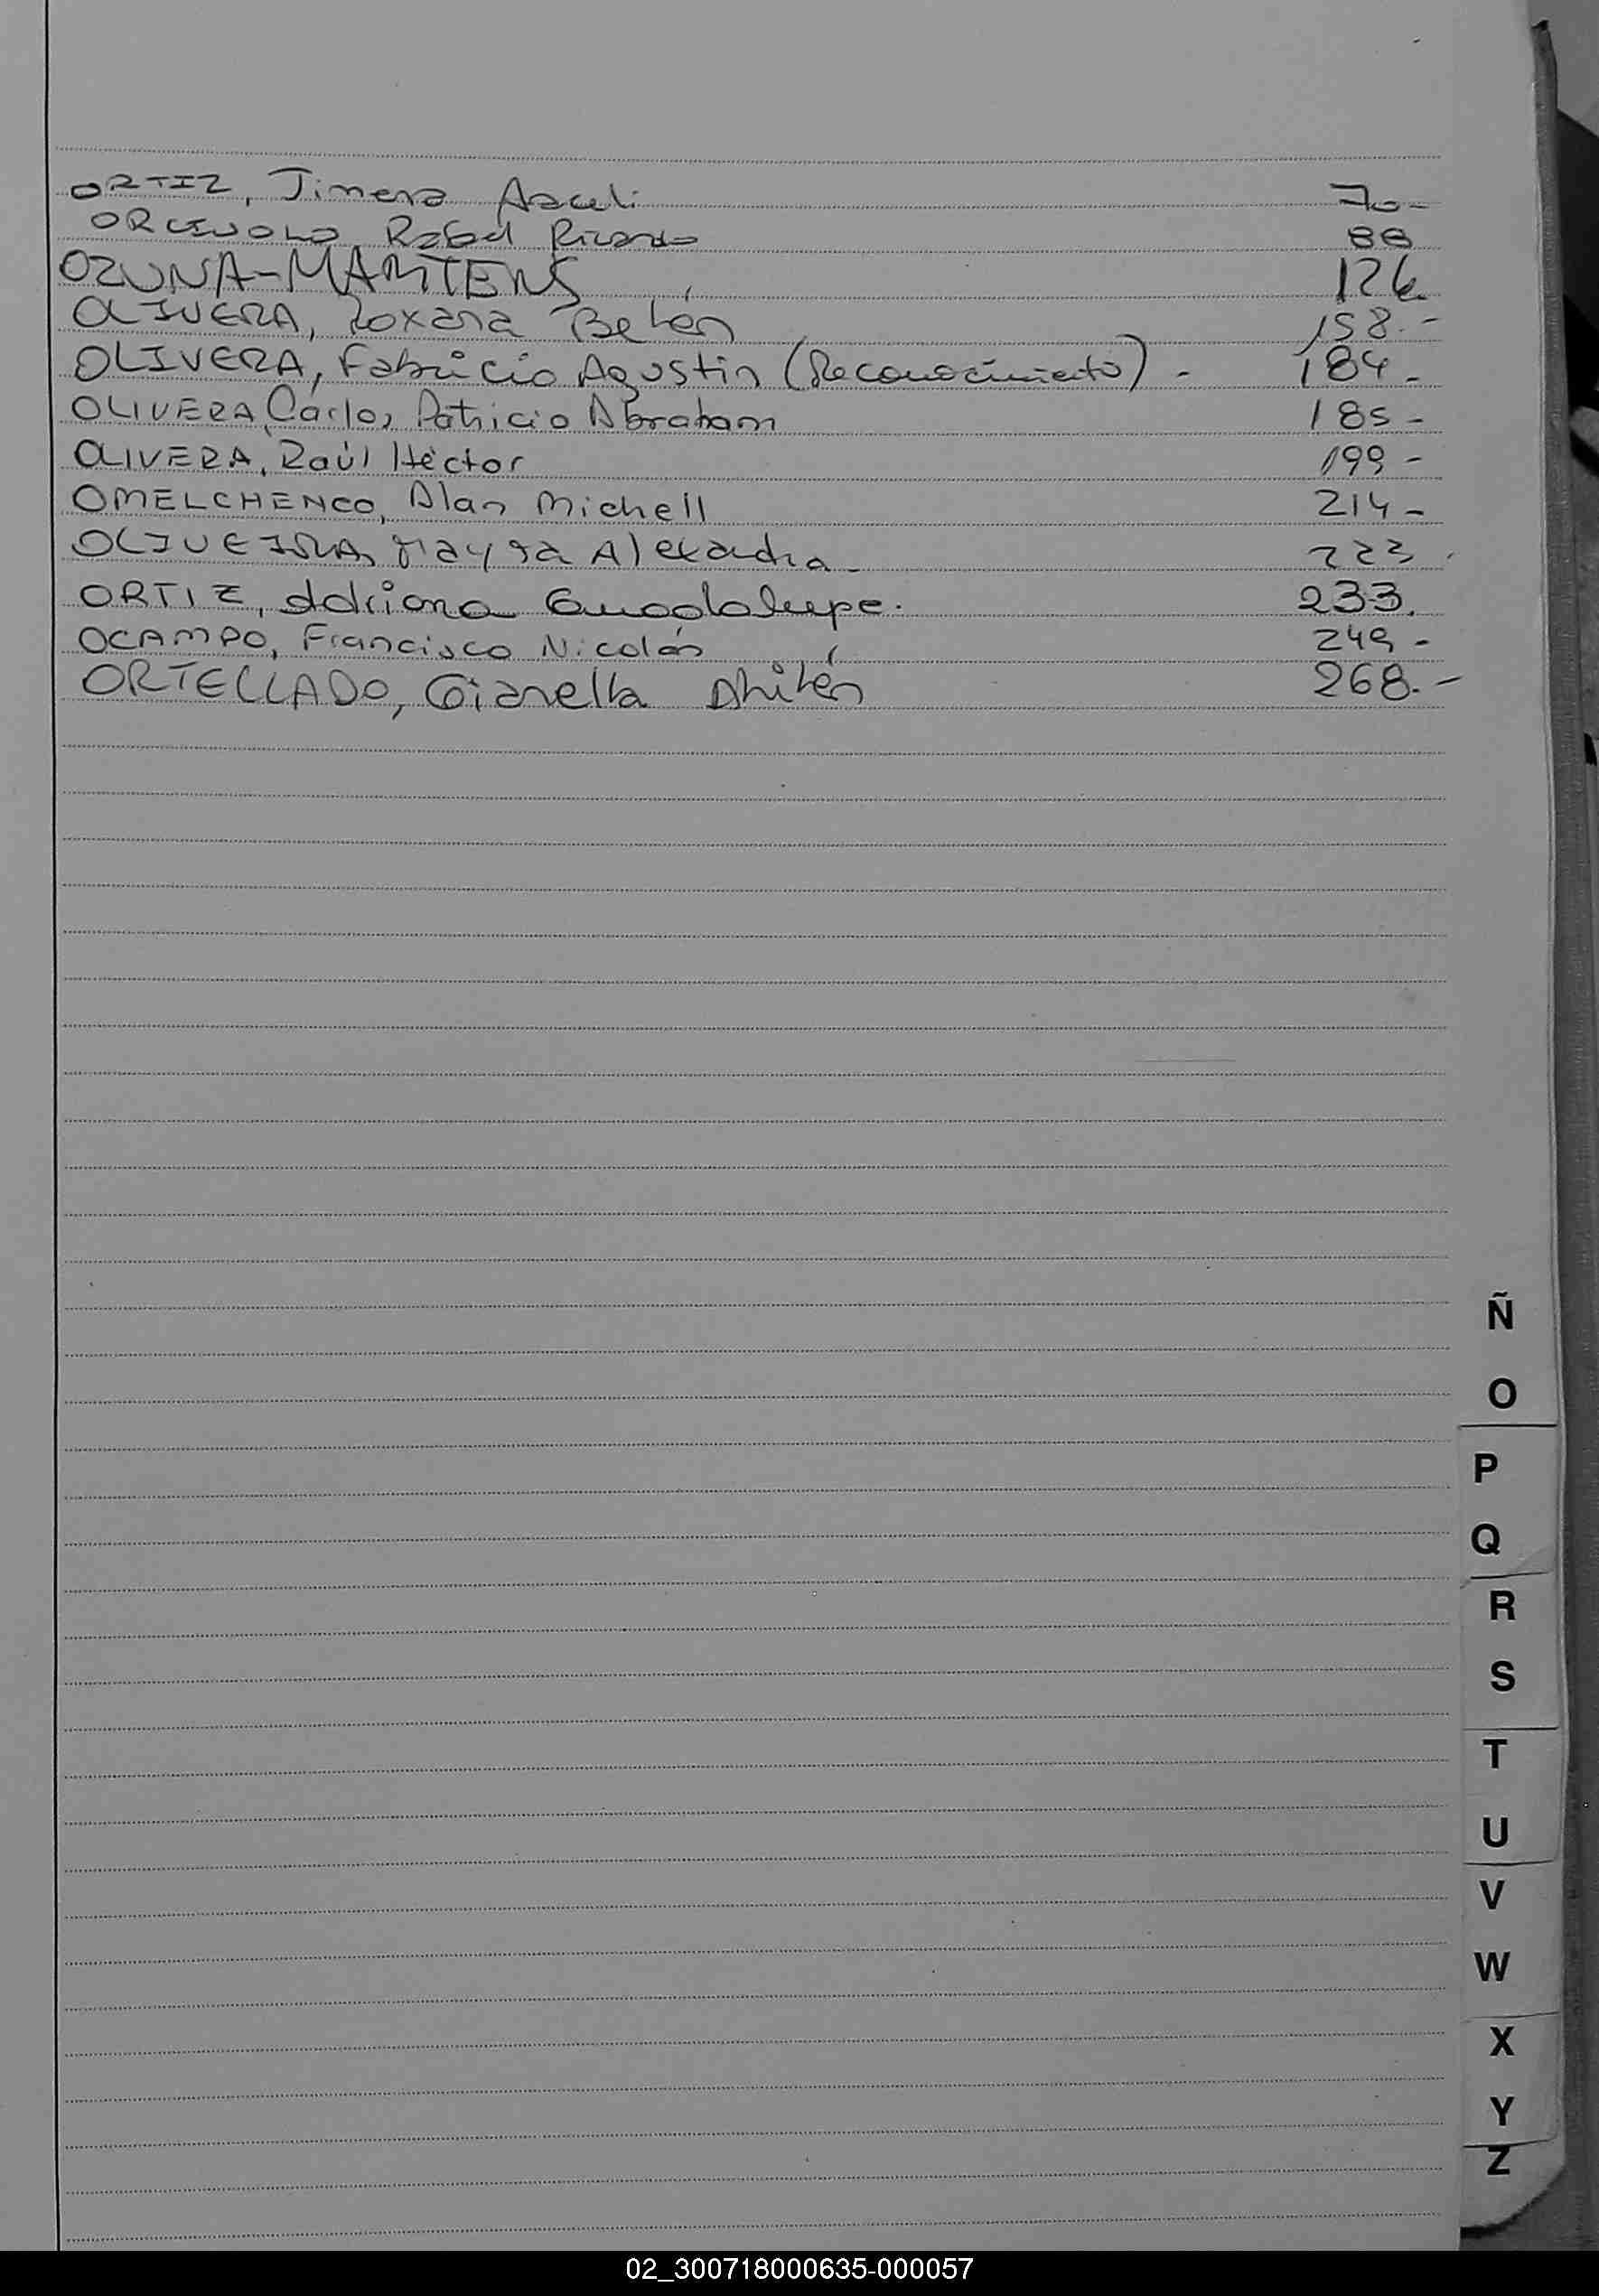 ORTIZ, Jimena Araceli 70-
Rafael Ricardo 88
OZUNA-MARTENS 126.
OLIVERA, Roxana Belén 158.-
OLIVERA, Fabricio Agustin (Reconocimiento) - 184-
OLIVERA, Carlos Patricio Abraham 185-
OLIVERA, Raúl Héctor 199-
OMELCHENCO, Alan Michell 214-
OLIVEIRA, Mayra Alexandra- 223.
ORTIZ, Adriana Guadalupe. 233.
OCAMPO, Francisco Nicolás 249-
ORTELLADO, Gianella 268.-
Ñ
O
P
Q
R
S
T
U
V
W
X
Y
Z
02_300718000635-000057